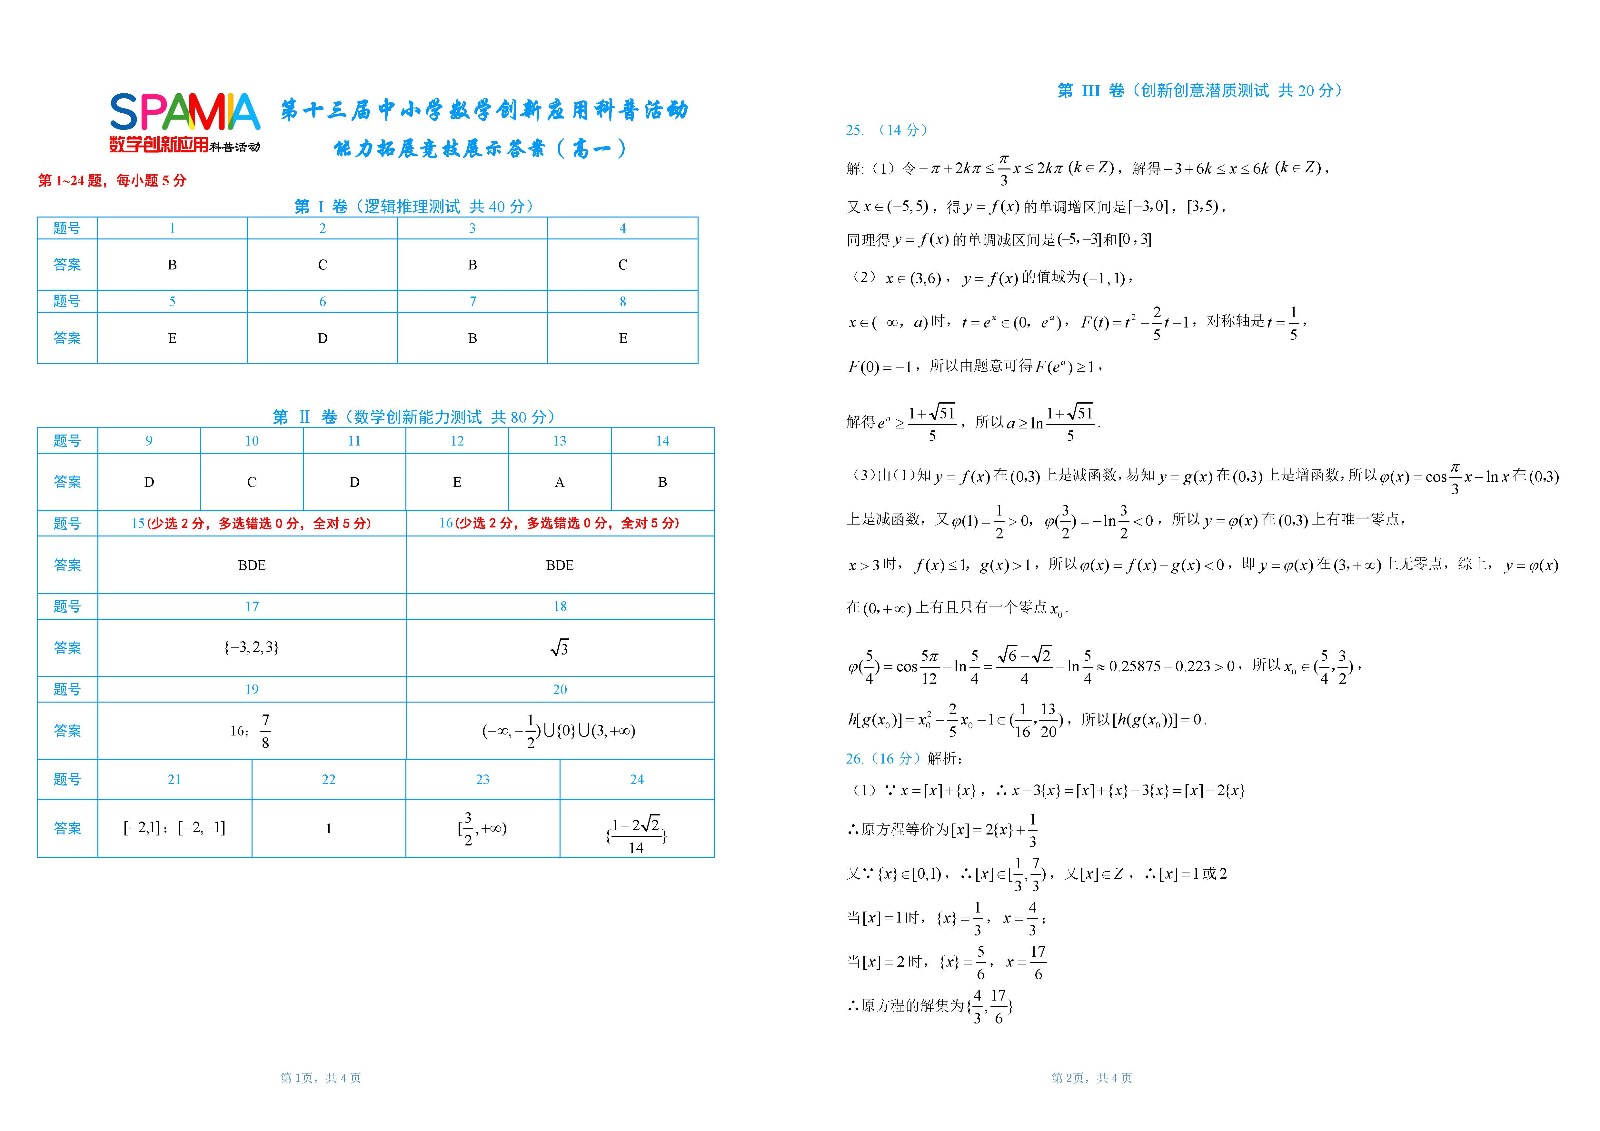 SPAMIA
数学创新应用科普活动
第十三届中小学数学创新应用科普活动
能力拓展竞技展示答案（高一）
第1~24题，每小题5分
第 Ⅰ 卷（逻辑推理测试 共40分）
题号 1 2 3 4
答案 B C B C
题号 5 6 7 8
答案 E D B E
第 Ⅱ 卷（数学创新能力测试 共80分）
题号 9 10 11 12 13 14
答案 D C D E A B
题号 15(少选2分，多选错选0分，全对5分) 16(少选2分，多选错选0分，全对5分)
答案 BDE BDE
题号 17 18
答案 {−3,2,3} √3
题号 19 20
答案 16；7/8 (−∞,−1/2)∪{0}∪(3,+∞)
题号 21 22 23 24
答案 [−2,1]；[−2,−1] 1 [3/2,+∞) {(1−2√2)/14}
第1页，共4页
第 III 卷（创新创意潜质测试 共20分）
25.（14分）
解:（1）令−π+2kπ≤(π/3)x≤2kπ (k∈Z)，解得−3+6k≤x≤6k (k∈Z)，
又x∈(−5,5)，得y=f(x)的单调增区间是[−3,0]，[3,5)，
同理得y=f(x)的单调减区间是(−5,−3]和[0,3]
（2）x∈(3,6)，y=f(x)的值域为(−1,1)，
x∈(−∞，a)时，t=eˣ∈(0，eᵃ)，F(t)=t²−(2/5)t−1，对称轴是t=1/5，
F(0)=−1，所以由题意可得F(eᵃ)≥1，
解得eᵃ≥(1+√51)/5，所以a≥ln (1+√51)/5.
（3)由(1)知y=f(x)在(0,3)上是减函数,易知y=g(x)在(0,3)上是增函数,所以φ(x)=cos(π/3)x−ln x在(0,3)
上是减函数，又φ(1)=1/2>0，φ(3/2)=−ln(3/2)<0，所以y=φ(x)在(0,3)上有唯一零点，
x>3时，f(x)≤1，g(x)>1，所以φ(x)=f(x)−g(x)<0，即y=φ(x)在(3,+∞)上无零点，综上，y=φ(x)
在(0,+∞)上有且只有一个零点x₀.
φ(5/4)=cos(5π/12)−ln(5/4)=(√6−√2)/4−ln(5/4)≈0.25875−0.223>0，所以x₀∈(5/4,3/2)，
h[g(x₀)]=x₀²−(2/5)x₀−1∈(1/16,13/20)，所以[h(g(x₀))]=0.
26.（16分）解析：
（1）∵x=[x]+{x}，∴x−3{x}=[x]+{x}−3{x}=[x]−2{x}
∴原方程等价为[x]=2{x}+1/3
又∵{x}∈[0,1)，∴[x]∈[1/3,7/3)，又[x]∈Z，∴[x]=1或2
当[x]=1时，{x}=1/3，x=4/3；
当[x]=2时，{x}=5/6，x=17/6
∴原方程的解集为{4/3,17/6}
第2页，共4页